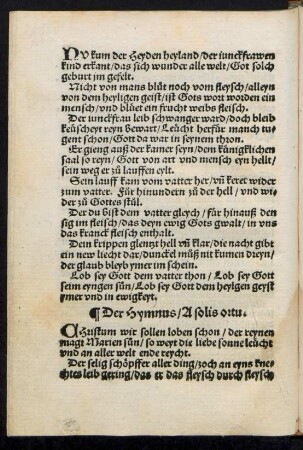 NV kum der Heyden heyland / der iunckfrawen
kind erkant / das sich wunder alle welt / Got solch
geburt jm geselt.
Nicht von mans blůt noch vom fleysch / alleyn
von dem heyligen geist / ist Gots wort worden ein
mensch / vnd blüet ein frucht weibs fleisch.
Der iunckfrau leib schwanger ward / doch bleib
keüscheyt reyn bewart / Leücht herfür manch tu-
gent schon / Got da war in seynem thron.
Er gieng auß der kamer seyn / den künigklichen
saal so reyn / Got von art vnd mensch eyn hellt /
sein weg er zu lauffen eylt.
Sein lauff kam vom vatter her / vñ keret wider
zum vatter. Für hinundern zu der hell / vnd wi-
der zu Gottes stůl.
Der du bist dem vatter gleych / für hinauß den
sig im fleisch / das deyn ewig Gots gwalt / in vns
das kranck fleisch enthalt.
Dein krippen glentzt hell vñ klar / die nacht gibt
ein new liecht dar / dunckel můß nit kumen dreyn /
der glaub bleyb ymer im schein.
Lob sey Got dem vatter thon / Lob sey Got
seim eyngen sün / Lob sey Got dem heylgen geyst
ymer vnd in ewigkeyt.
¶ Der Hymnus / A solis ortu.
CHristum wir sollen loben schon / der reynen
magt Marien sün / so weyt die liebe sonne leücht
vnd an aller welt ende reycht.
Der selig schöpffer aller ding / zoch an eyns kne-
chtes leib gering / das er das fleysch durch fleysch